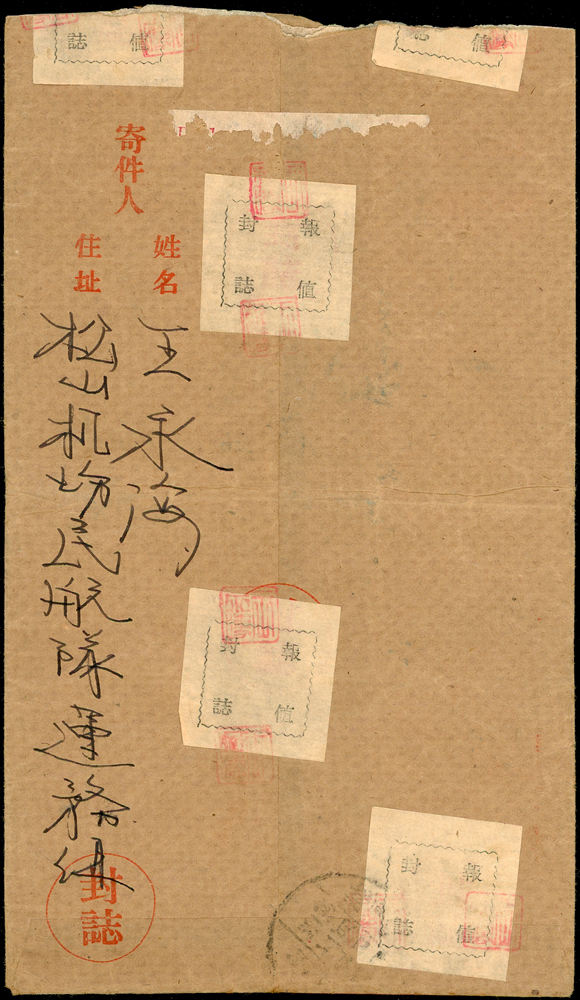 誌 值
誌 值
寄件人
姓名
住址
王永海
松山机場民航隊運務組
報值
封誌
報值
封誌
報值
封誌
封誌